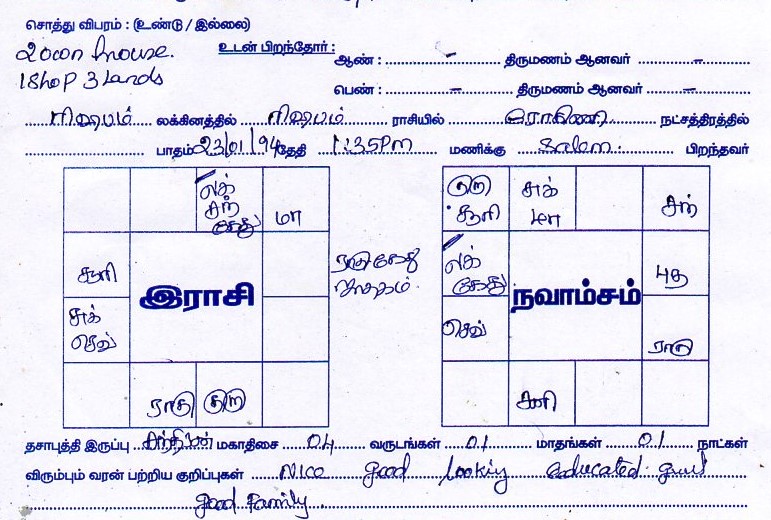 சொத்து விபரம் : (உண்டு / இல்லை)
2 own house.
1 Shop 3 Lands
உடன் பிறந்தோர் : ஆண் : – திருமணம் ஆனவர் –
பெண் : – திருமணம் ஆனவர் –
ரிஷபம் லக்கினத்தில் ரிஷபம் ராசியில் ரோகிணி நட்சத்திரத்தில்
பாதம் 23/01/94 தேதி 1:35 Pm மணிக்கு Salem. பிறந்தவர்
லக் சந் கேது
மா
சூரி
இராசி
சுக் செவ்
ராகு
குரு
ராகு கேது
ஜாதகம்.
குரு சூரி
சுக் மா
சந்
லக் கேது
நவாம்சம்
புத
செவ்
ராகு
சனி
தசாபுத்தி இருப்பு சந்திரன் மகாதிசை 04 வருடங்கள் 01 மாதங்கள் 01 நாட்கள்
விரும்பும் வரன் பற்றிய குறிப்புகள் Nice good looking educated
good family